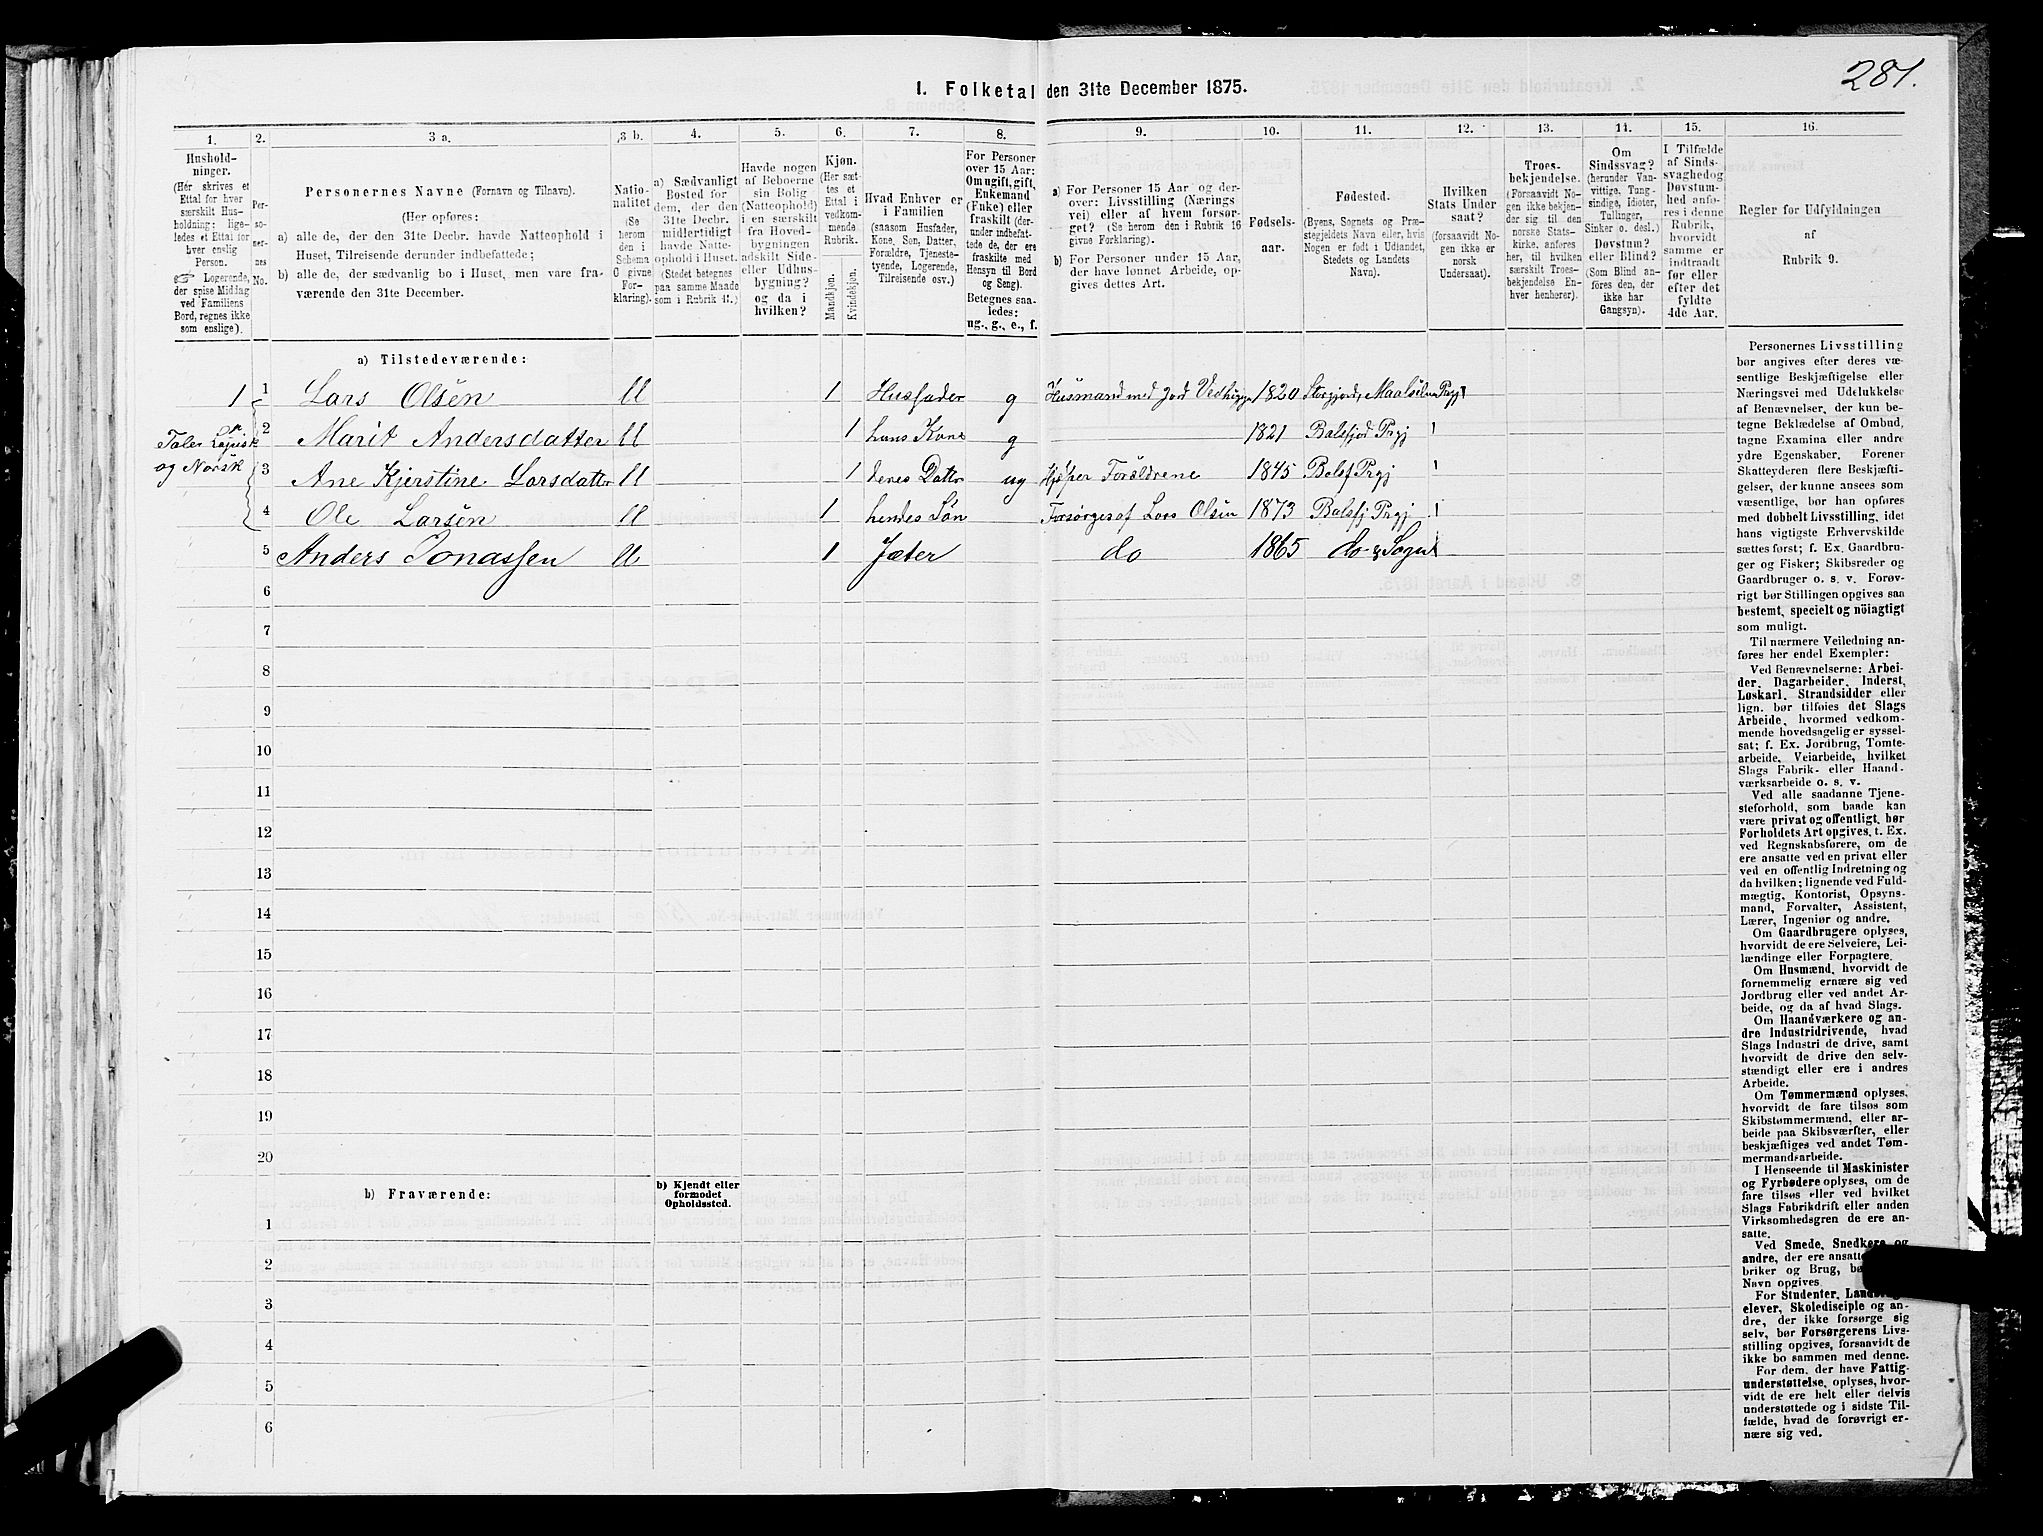 281.
1. Folketal den 31te December 1875.
1.
2.
3 a.
3 b.
4.
5.
6.
7.
8.
9.
10.
11.
12.
13.
14.
15.
16.
Hushold-
ninger.
(Her skrives et
Ettal for hver
særskilt Hus-
holdning; lige-
ledes et Ettal for
hver enslig
Person.
☞ Logerende,
der spise Middag
ved Familiens
Bord, regnes ikke
som enslige).
Per-
so-
ner-
nes
No.
Personernes Navne (Fornavn og Tilnavn).
(Her opføres:
a) alle de, der den 31te Decbr. havde Natteophold i
Huset, Tilreisende derunder indbefattede;
b) alle de, der sædvanlig bo i Huset, men vare fra-
værende den 31te December.
Natio-
nalitet
(Se
herom
den i
Schema
C givne
For-
klaring).
a) Sædvanligt
Bosted for
dem, der den
31te Decbr.
midlertidigt
havde Natte-
ophold i Huset.
(Stedet betegnes
paa samme Maade
som i Rubrik 4!.)
Havde nogen
af Beboerne
sin Bolig
(Natteophold)
i en særskilt
fra Hoved-
bygningen
adskilt Side-
eller Udhus-
bygning?
og da i
hvilken?
Kjøn.
(Her sæt-
tes et
Ettal i
vedkom-
mende
Rubrik.
Mandkjøn.
Kvindekjøn.
Hvad Enhver er
i Familien
(saasom Husfader,
Kone, Søn, Datter,
Forældre, Tjeneste-
tyende, Logerende,
Tilreisende osv.)
For Personer
over 15 Aar:
Om ugift, gift,
Enkemand
(Enke) eller
fraskilt (der-
under indbefat-
tede de, der ere
fraskilte med
Hensyn til Bord
og Seng).
Betegnes saa-
ledes:
ug., g., e., f.
a) For Personer 15 Aar og der-
over: Livsstilling (Nærings-
vei) eller af hvem forsør-
get? (Se herom den i Rubrik 16
givne Forklaring).
b) For Personer under 15 Aar,
der have lønnet Arbeide, op-
gives dettes Art.
Fødsels-
aar.
Fødested.
(Byens, Sognets og Præ-
stegjeldets Navn eller, hvis
Nogen er født i Udlandet,
Stedets og Landets
Navn).
Hvilken
Stats Under
saat?
(forsaavidt No-
gen ikke er
norsk
Undersaat).
Troes-
bekjendelse.
(Forsaavidt No-
gen ikke bekjen-
der sig til den
norske Stats-
kirke, anføres
her, til hvilken
særskilt Troes-
bekjendelse En-
hver henhører).
Om
Sindssvag?
(herunder Van-
vittige, Tung-
sindige, Idioter,
Tullinger,
Sinker o. desl.)
Døvstum?
eller Blind?
(Som Blind an-
føres den, der
ikke har
Gangsyn).
I Tilfælde
af Sinds-
svaghed og
Døvstum-
hed anfø-
res i denne
Rubrik,
hvorvidt
samme er
indtraadt
før eller
efter det
fyldte
4de Aar.
Regler for Udfyldningen
af
Rubrik 9.
a) Tilstedeværende:
1 1 Lars Olsen ll 1 Husfader g Husmand med Jord Vedhugger 1820 Storfjord, Maalselven Prgj
2 Marit Andersdatter ll 1 hans Kone g 1821 Balsfjod Prgj
Taler Lapisk
og Norsk
3 Ane Kjerstine Larsdatter ll 1 deres Datter ug Hjælper Forældrene 1845 Balsf Prgj
4 Ole Larsen ll 1 hendes Søn Forsørges af Lars Olsen 1873 Balsfj Prgj
5 Anders Jonassen ll 1 Jæter do 1865 do & Sogn
6
7
8
9
10
11
12
13
14
15
16
17
18
19
20
b) Fraværende:
b) Kjendt eller
formodet
Opholdssted.
1
2
3
4
5
6
Personernes Livsstilling
bør angives efter deres væ-
sentlige Beskjæftigelse eller
Næringsvei med Udelukkelse
af Benævnelser, der kun be-
tegne Beklædelse af Ombud,
tagne Examina eller andre
ydre Egenskaber. Forener
Skatteyderen flere Beskjæfti-
gelser, der kunne ansees som
væsentlige, bør han opføres
med dobbelt Livsstilling, idet
hans vigtigste Erhvervskilde
sættes først; f. Ex. Gaardbru-
ger og Fisker; Skibsreder og
Gaardbruger o. s. v. Forøv-
rigt bør Stillingen opgives saa
bestemt, specielt og nöiagtigt
som muligt.
Til nærmere Veiledning an-
føres her endel Exempler:
Ved Benævnelserne: Arbei-
der, Dagarbeider, Inderst,
Løskarl, Strandsidder eller
lign. bør tilføies det Slags
Arbeide, hvormed vedkom-
mende hovedsagelig er syssel-
sat; f. Ex. Jordbrug, Tomte-
arbeide, Veiarbeide, hvilket
Slags Fabrik- eller Haand-
værksarbeide o. s. v.
Ved alle saadanne Tjene-
steforhold, som baade kan
være privat og offentligt, bør
Forholdets Art opgives, t. Ex.
ved Regnskabsførere, om de
ere ansatte ved en privat eller
ved en offentlig Indretning og
da hvilken; lignende ved Fuld-
mægtig, Kontorist, Opsyns-
mand, Forvalter, Assistent,
Lærer, Ingeniør og andre.
Om Gaardbrugere oplyses,
hvorvidt de ere Selveiere, Lei-
lændinge eller Forpagtere.
Om Husmænd, hvorvidt de
fornemmelig ernære sig ved
Jordbrug eller ved andet Ar-
beide, og da af hvad Slags.
Om Haandværkere og an-
dre Industridrivende, hvad
Slags Industri de drive, samt
hvorvidt de drive den selv-
stændigt eller ere i andres
Arbeide.
Om Tømmermænd oplyses,
hvorvidt de fare tilsøs som
Skibstømmermænd, eller ar-
beide paa Skibsværfter, eller
beskjæftiges ved andet Tøm-
mermandsarbeide.
I Henseende til Maskinister
og Fyrbødere oplyses, om de
fare tilsøs eller ved hvilket
Slags Fabrikdrift eller anden
Virksomhedsgren de ere an-
satte.
Ved Smede, Snedkere og
andre, der ere ansatte
briker og Brug, bø
Navn opgives.
For Studenter, Landbrugs-
elever, Skoledisciple og an-
dre, der ikke forsørge sig
selv, bør Forsørgerens Livs-
stilling opgives, forsaavidt de
ikke bo sammen med denne.
For dem, der have Fattig-
understøttelse, oplyses, hvor-
vidt de ere helt eller delvis
understøttede og i sidste Til-
fælde, hvad de forøvrigt er-
nære sig ved.